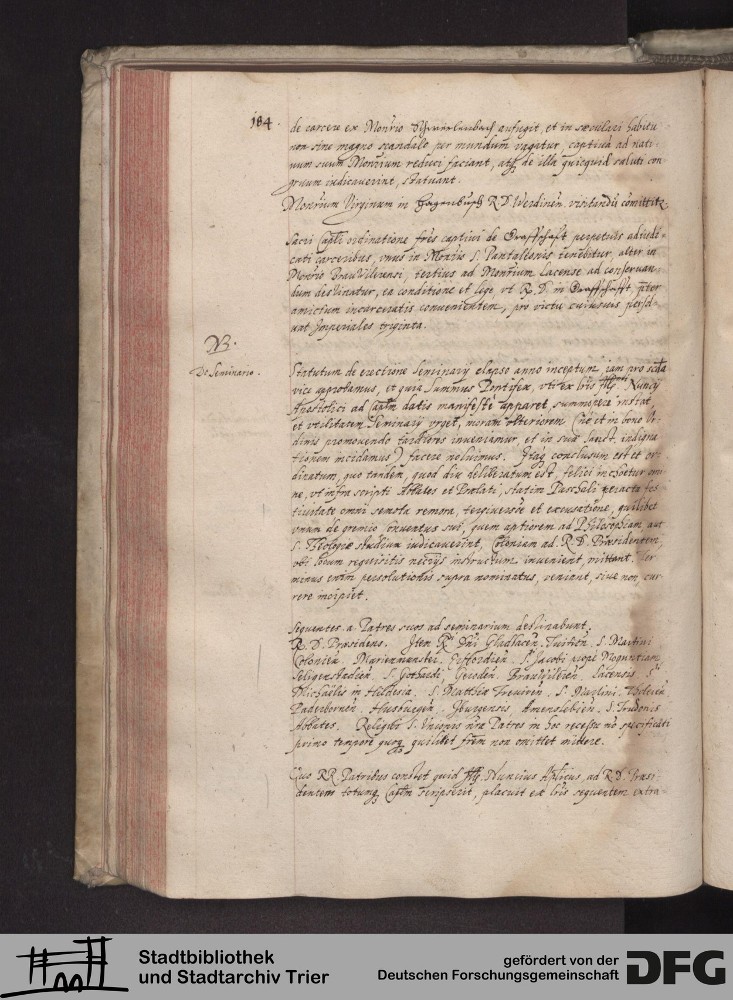 184.
de carcere ex Monrio Schwartzenbach aufugit, et in sæculari habitu
non sine magno scandalo per mundum vagatur, captivū ad nati-
vum suum Monrium reduci faciant, atq de illa quicquid saluti con
gruum iudicauerint, statuant.
Monrium Virginum in Hagenbusch R.D. Werdinēn. visitandū cōmittitr
Sacri Capli ordinatione frēs captivi de Graffschafft perpetuis adiudi-
cati carceribus, vnus in Monrio S. Pantaleonis tenebitur, alter in
Monrio Brauwillerensi, tertius ad Monrium Lacense ad conseruan-
dum destinatur, ea conditione et lege, vt R.D. in Graffschafft, pter
amictum incarceratis convenientem, pro victu cuiusuis persol-
uat Imperiales triginta.
NB.
De Seminario.
Statutum de erectione Seminarij elapso anno inceptum, iam pro scda
vice approbamus, et quia Summus Pontifex, vti ex lris Illmi Nuncij
Apostolici ad Caplm datis manifestè apparet, summopere instat,
et vtilitatem Seminarij vrget, moram vlteriorem (ne et in bono Or-
dinis promouendo tardiores inueniamur, et in suæ Sanct. indigna-
tionem incidamus) facere nolumus. Itaq conclusum est et or-
dinatum, quo tandem, quod diu deliberatum est, felici inchoetur omi-
ne, vt infra scripti Abbates et Prælati, statim Paschali peracta fes-
tiuitate omni semota remora, tergiuersatione et excusatione, quilibet
vnum de gremio Conuentus sui, quem aptiorem ad Philosophiam aut
S. Theologiæ studium iudicauerint, Coloniam ad R.D. Præsidentem,
vbi locum requisitis necrijs instructum inuenient, mittant. Ter-
minus enim persolutionis supra nominatus, veniant, siue non, cur-
rere incipiet.
Sequentes a Patres suos ad seminarium destinabunt.
R.D. Præsidens. Item R. Dni Gladbacēn. Tuitiēn. S. Martini
Coloniēn. Marienmunster. Erffordiēn. S. Jacobi prope Moguntiam
Seligenstadiēn. S. Gothardi, Brauwillēn. Lacensis. S.
Michaëlis in Hildesia. S. Matthiæ Treuirēn. S. Maximi.
Paderbornēn. Husburgēn. Iburgensis. S. Trudonis
Abbates. Reliqui S. Unionis nræ Patres in hoc recessu nō specificati
primo tempore quoq quilibet frēm non omittet mittere.
Quo RR. Patribus constet quid Illmus Nuncius Aplicus, ad R.D. Præsi-
dentem totumq Caplm scripserit, placuit ex lris sequentem extra-
Stadtbibliothek
und Stadtarchiv Trier
gefördert von der
Deutschen Forschungsgemeinschaft
DFG